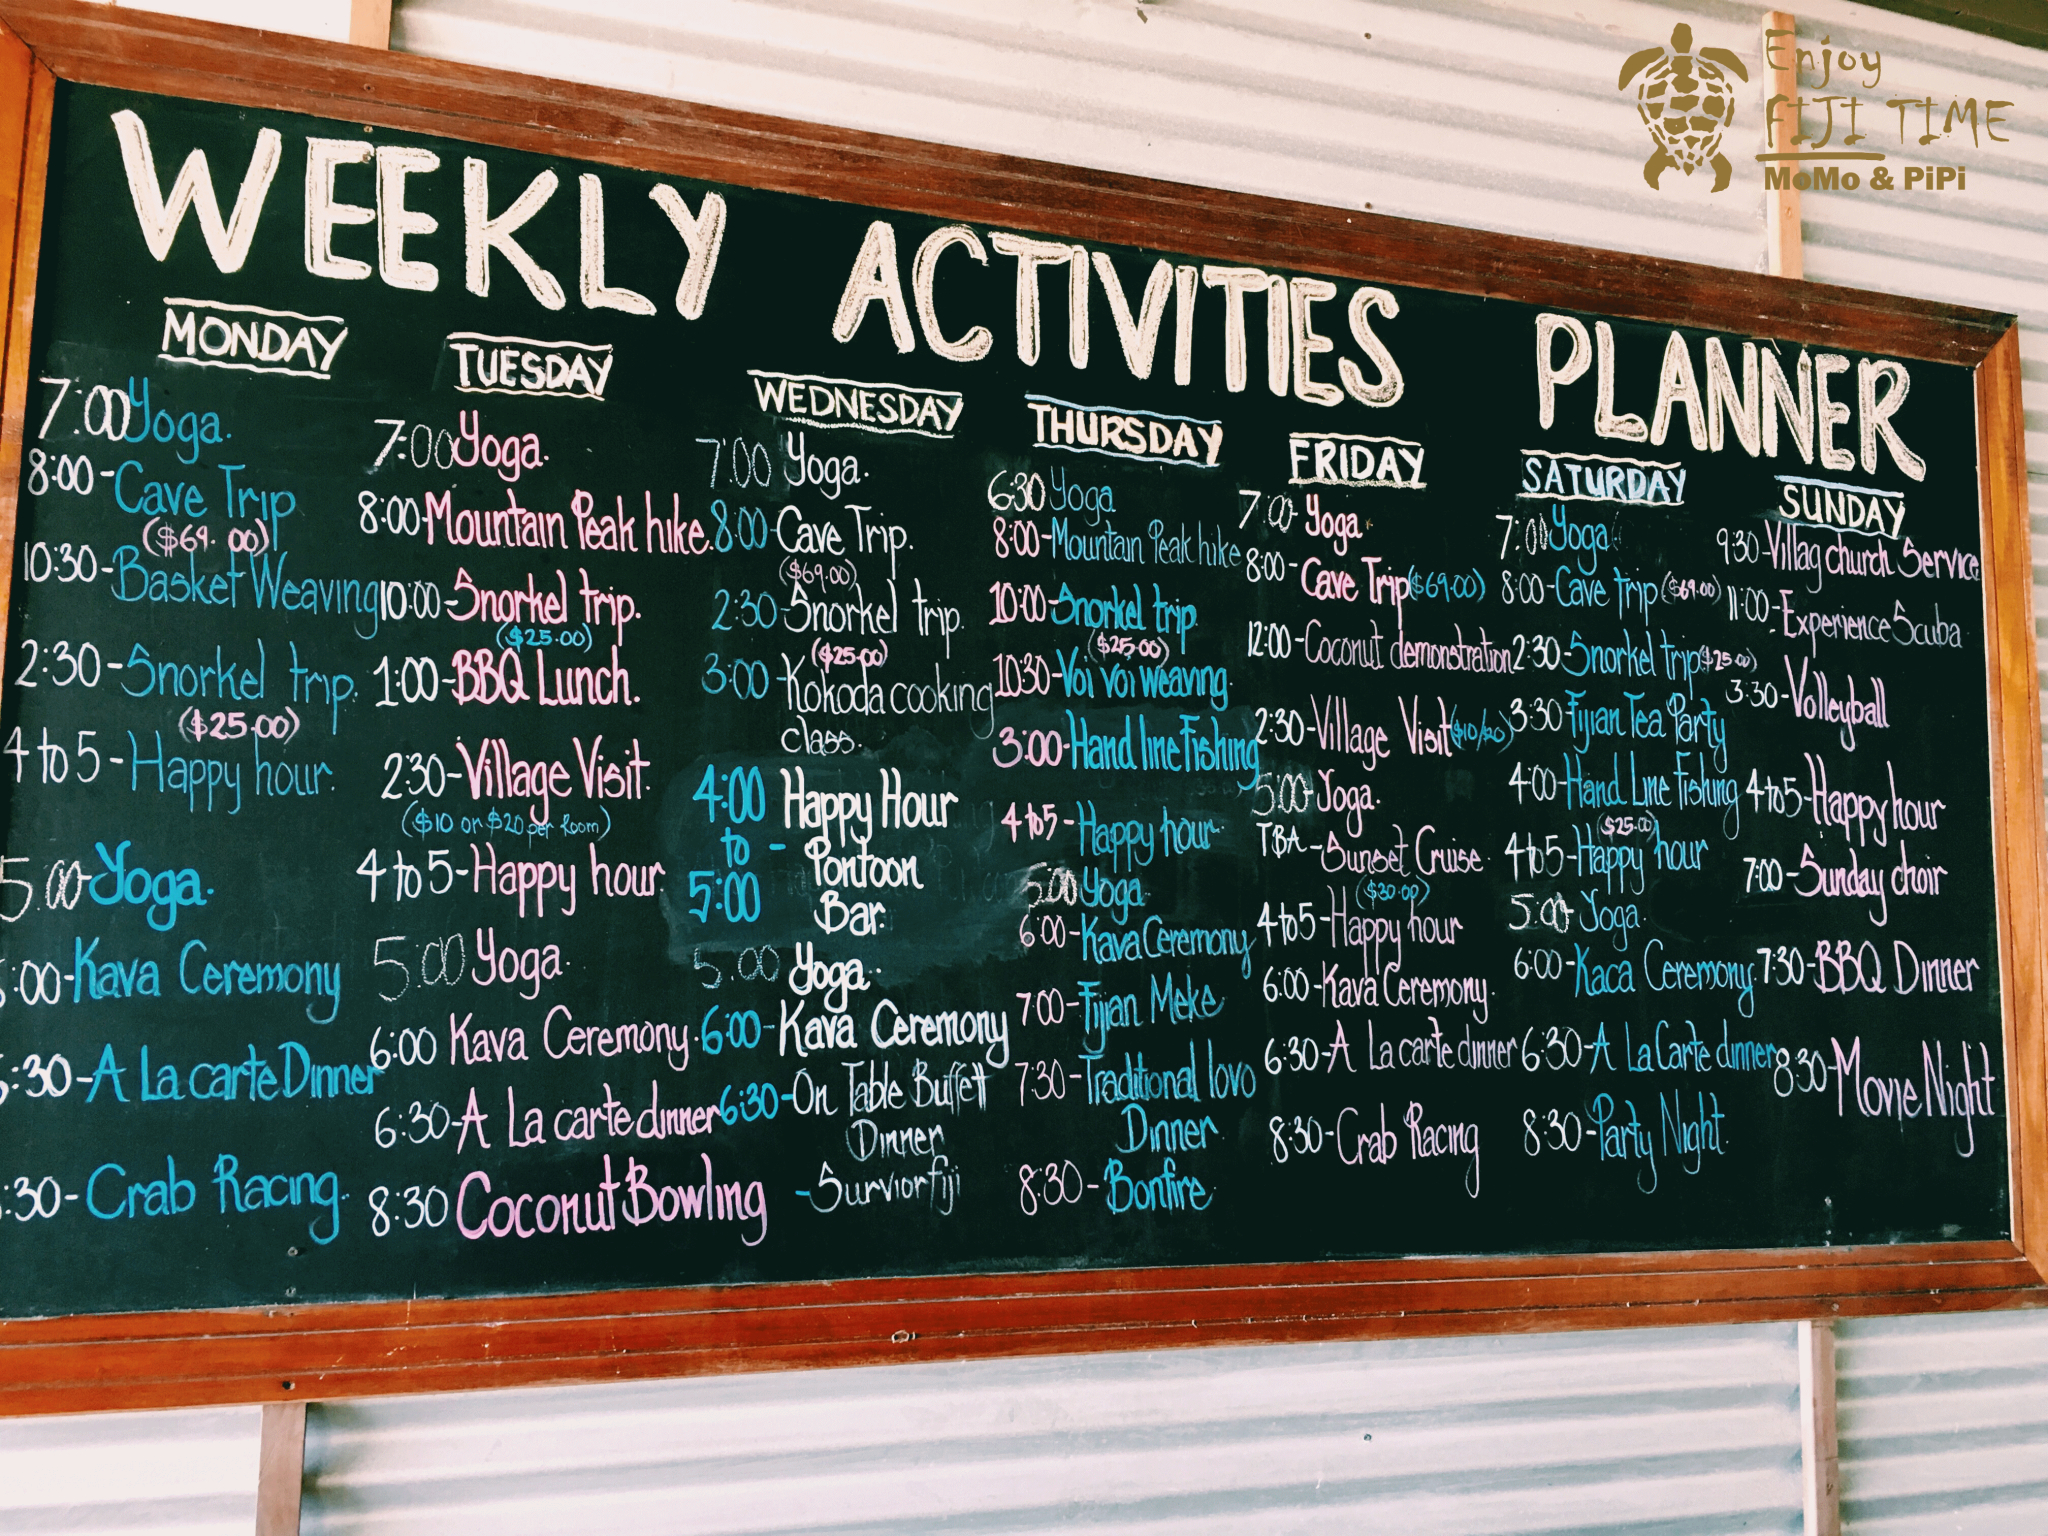 Enjoy
FIJI TIME
MoMo & PiPi
WEEKLY ACTIVITIES PLANNER
MONDAY
7:00 Yoga.
8:00-Cave Trip
($69.00)
10:30-Basket Weaving
2:30-Snorkel trip.
($25.00)
4 to 5-Happy hour.
5:00-Yoga.
:00-Kava Ceremony
:30-A La carte Dinner
:30-Crab Racing.
TUESDAY
7:00 Yoga.
8:00-Mountain Peak hike.
10:00-Snorkel trip.
($25.00)
1:00-BBQ Lunch.
2:30-Village Visit.
($10 or $20 per Room)
4 to 5-Happy hour
5:00 Yoga.
6:00 Kava Ceremony.
6:30-A La carte dinner
8:30 Coconut Bowling
WEDNESDAY
7:00 Yoga.
8:00-Cave Trip.
($69.00)
2:30-Snorkel trip.
($25.00)
3:00-Kokoda cooking
class.
4:00 Happy Hour
to - Pontoon
5:00 Bar.
5:00 Yoga.
6:00-Kava Ceremony
6:30-On Table Buffett
Dinner
-Surviorfiji
THURSDAY
6:30 Yoga
8:00-Mountain Peak hike
10:00-Snorkel trip.
($25.00)
10:30-Voi Voi weaving.
3:00-Hand line Fishing
4 to 5-Happy hour.
5:00 Yoga.
6:00-Kava Ceremony
7:00-Fijian Meke
7:30-Traditional lovo
Dinner.
8:30-Bonfire.
FRIDAY
7:00-Yoga.
8:00-Cave Trip($69.00)
12:00-Coconut demonstration
2:30-Village Visit($10/$20)
5:00-Yoga.
TBA-Sunset Cruise.
($30.00)
4 to 5-Happy hour
6:00-Kava Ceremony.
6:30-A La carte dinner
8:30-Crab Racing
SATURDAY
7:00 Yoga
8:00-Cave trip($69.00)
2:30-Snorkel trip($25.00)
3:30 Fijian Tea Party
4:00-Hand Line Fishing
($25.00)
4 to 5-Happy hour
5:00-Yoga.
6:00-Kaca Ceremony.
6:30-A La Carte dinner
8:30-Party Night.
SUNDAY
9:30-Villag church Service
11:00-Experience Scuba
3:30-Volleyball
4 to 5-Happy hour
7:00-Sunday choir
7:30-BBQ Dinner
8:30-Movie Night